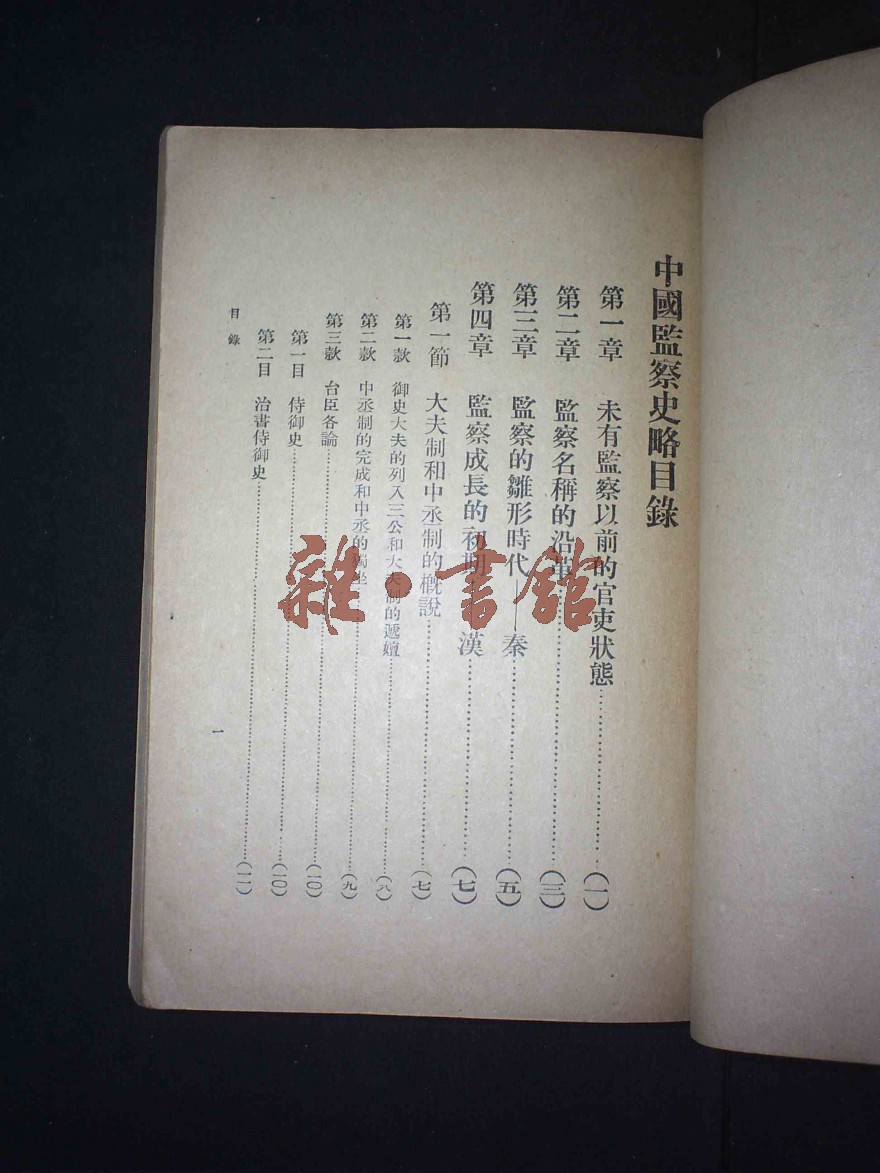 中國監察史略目錄
第一章 未有監察以前的官吏狀態……(一)
第二章 監察名稱的沿革……(三)
第三章 監察的雛形時代——秦……(五)
第四章 監察成長的初期——漢……(七)
第一節 大夫制和中丞制的概說……(七)
第一款 御史大夫的列入三公和大夫制的遞嬗……(八)
第二款 中丞制的完成和中丞的獨坐……(九)
第三款 台臣各論……(一〇)
第一目 侍御史……(一〇)
第二目 治書侍御史……(一一)
目錄
一
雜·書館